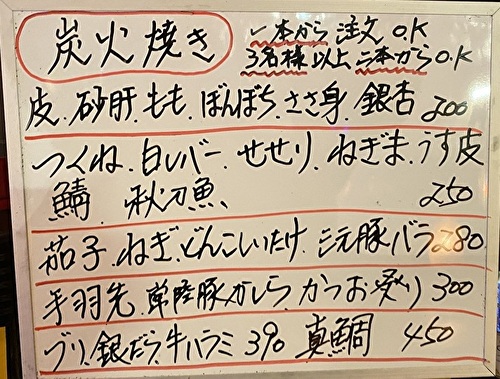 炭火焼き
一本から注文O.K
3名様以上二本からO.K
皮、砂肝、もも、ぼんぼち、ささ身、銀杏 200
つくね、白レバー、せせり、ねぎま、うす皮
鯖、秋刀魚 250
茄子、ねぎ、どんこいたけ、三元豚バラ 280
手羽先、常陸豚かしら、かつお 300
ブリ、銀だら、牛ハラミ 390 真鯛 450